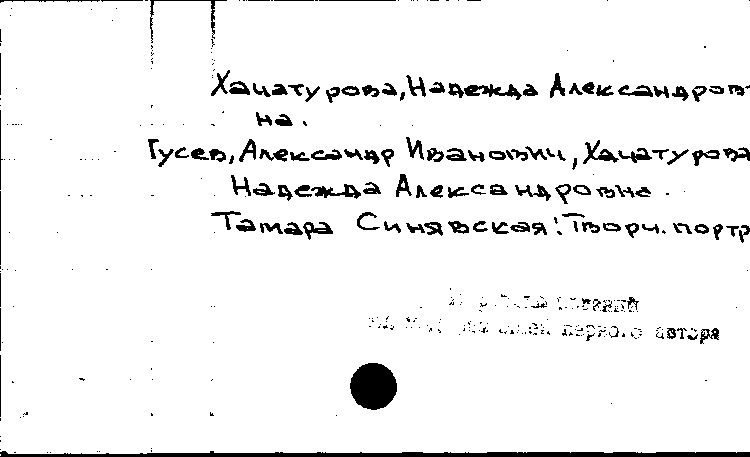 Хачатурова, Надежда Александров-
на.
Гусев, Александр Иванович, Хачатурова
Надежда Александровна.
Тамара Синявская: Творч. портр
первого автора